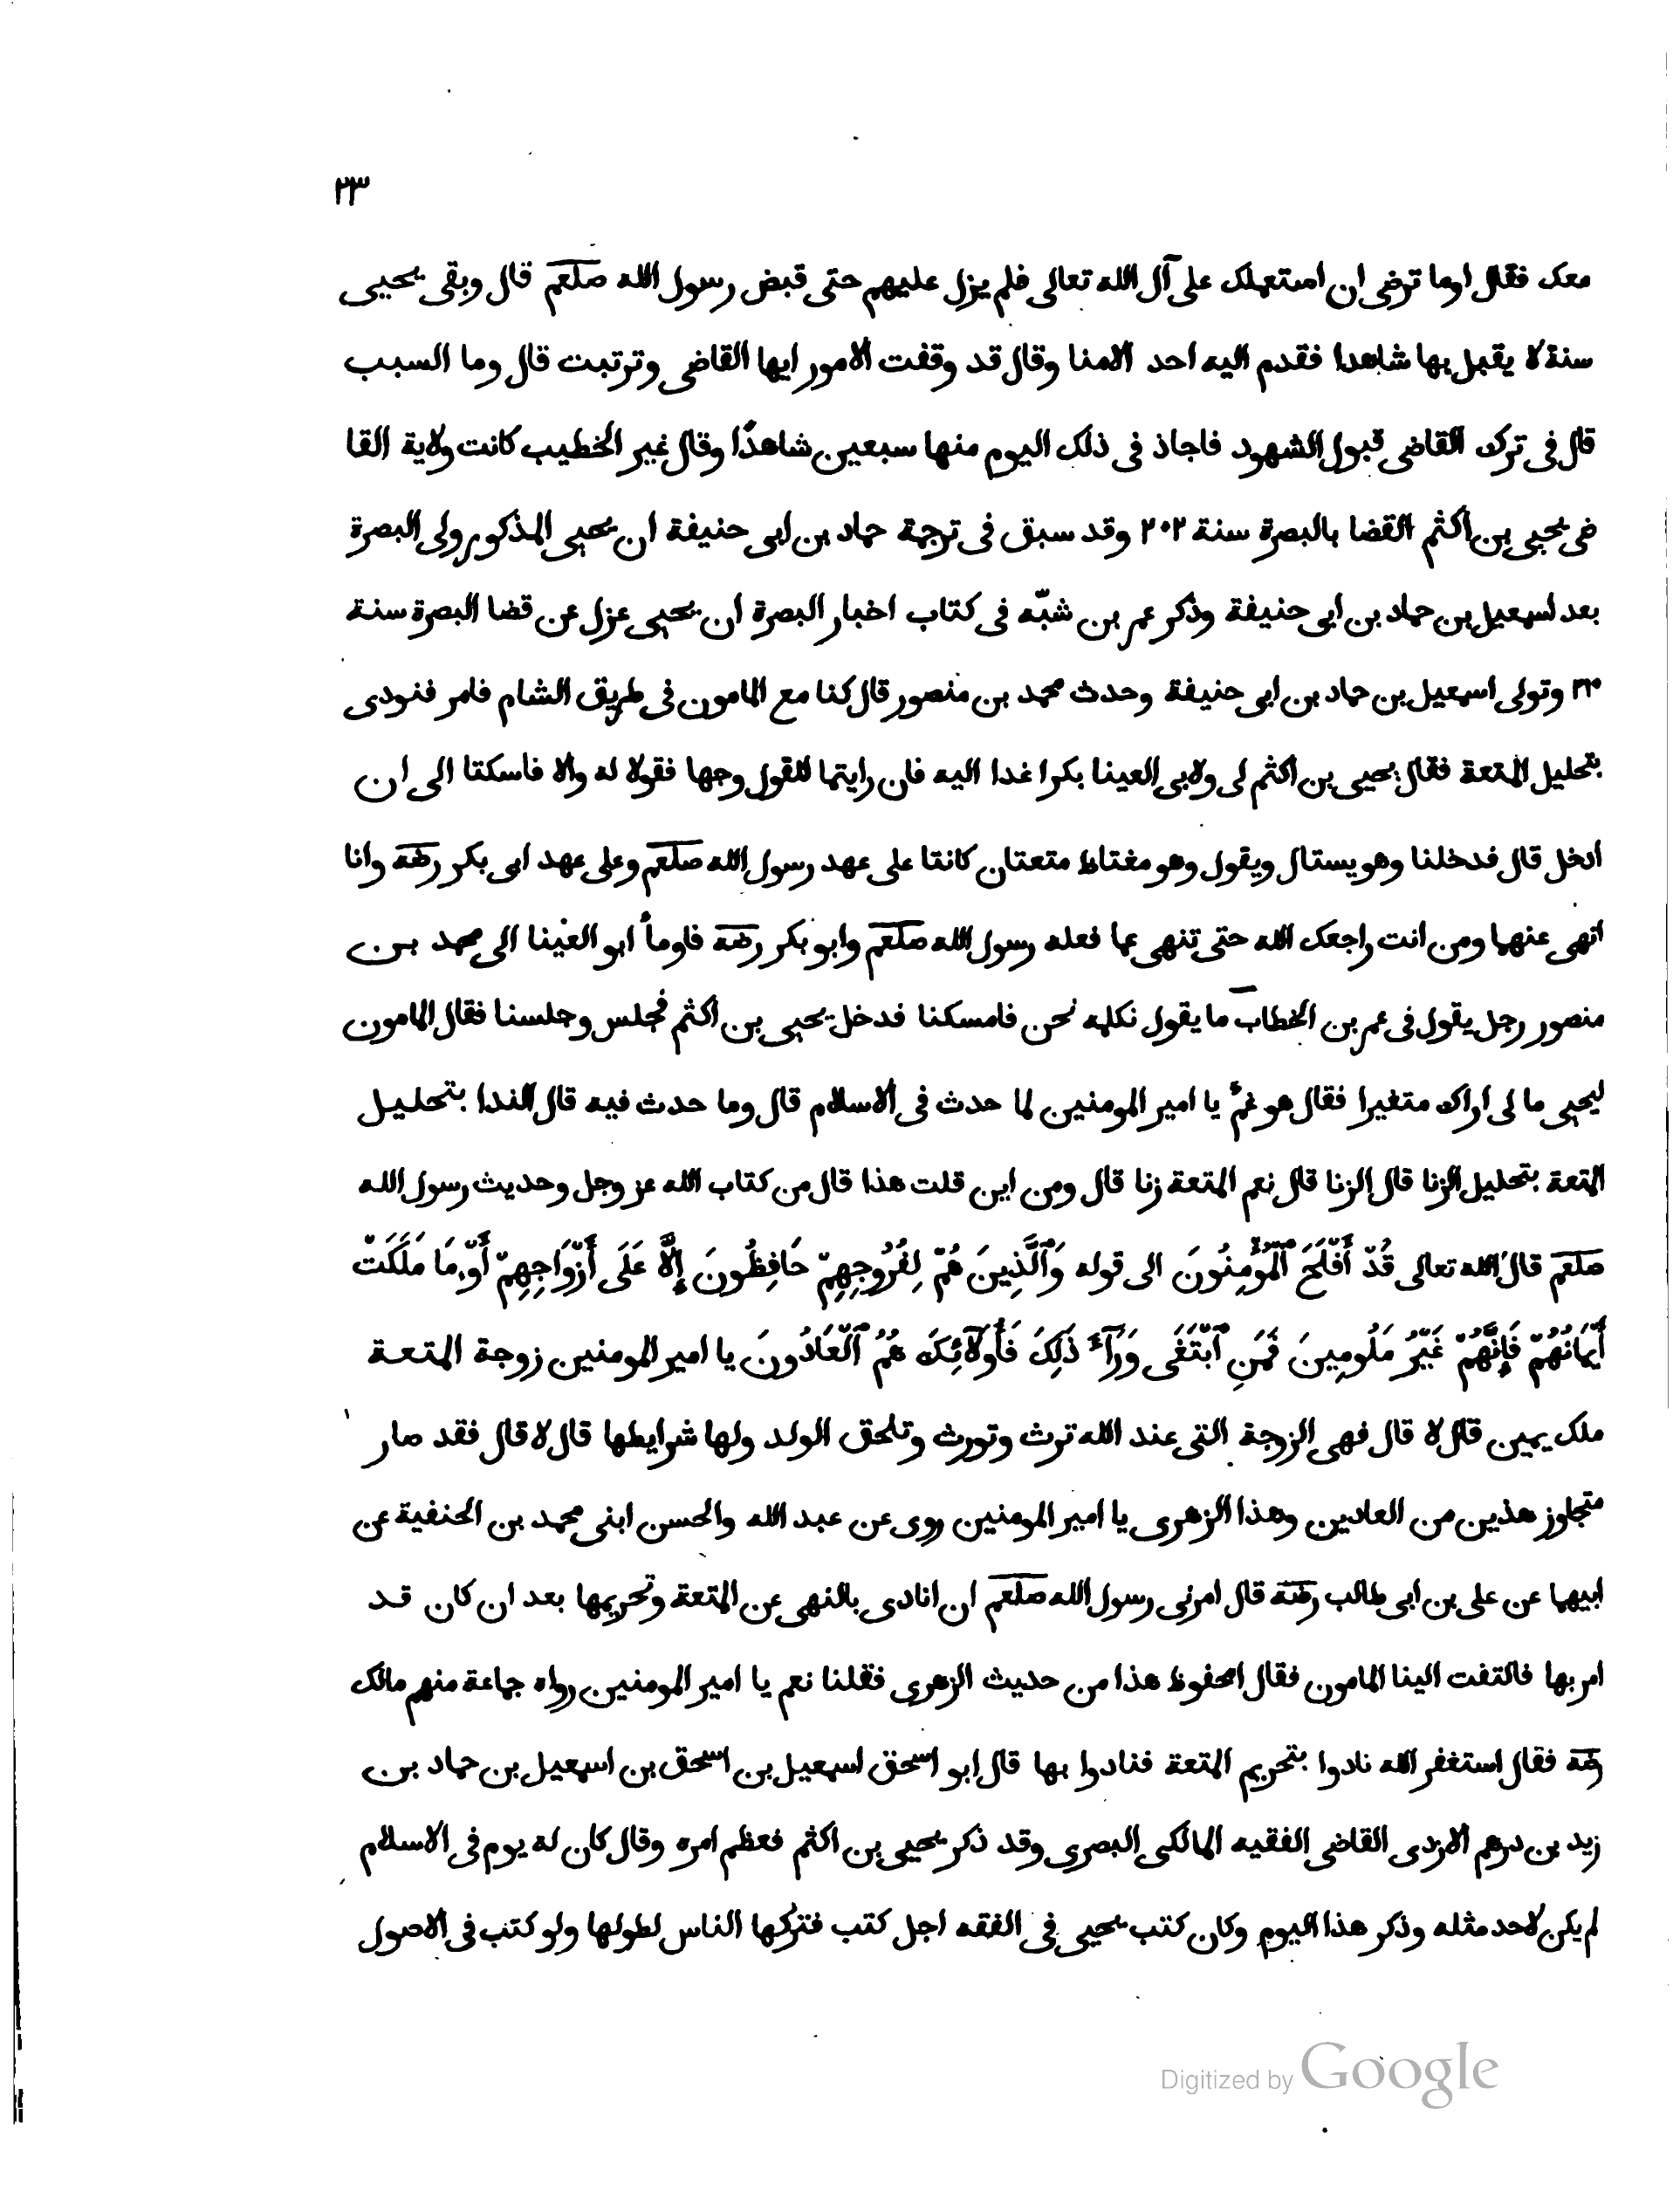 ٢٣
معك فقال اوما ترضى ان استعملك على آل الله تعالى فلم يزل عليهم حتى قبض رسول الله صلعم قال وبقى يحيى
سنة لا يقبل بها شاهدا فقدم اليه احد الامنا وقال قد وقفت الامور ايها القاضى وترتبت قال وما السبب
قال فى ترك القاضى قبول الشهود فاجاذ فى ذلك اليوم منها سبعين شاهدًا وقال غير الخطيب كانت ولاية القا
ضى يحيى بن اكثم القضا بالبصرة سنة ٢٠٢ وقد سبق فى ترجمة حماد بن ابى حنيفة ان يحيى المذكور ولى البصرة
بعد اسمعيل بن حماد بن ابى حنيفة وذكر عمر بن شبّه فى كتاب اخبار البصرة ان يحيى عزل عن قضا البصرة سنة
وتولى اسمعيل بن حماد بن ابى حنيفة وحدث محمد بن منصور قال كنا مع المامون فى طريق الشام فامر فنودى
بتحليل المتعة فقال يحيى بن اكثم لى ولابى العينا بكرا غدا اليه فان رايتما للقول وجها فقولا له والا فاسكتا الى ان
ادخل قال فدخلنا وهو يستال ويقول وهو مغتاط متعتان كانتا على عهد رسول الله صلعم وعلى عهد ابى بكر رضه وانا
انهى عنهما ومن انت راجعك الله حتى تنهى عما فعله رسول الله صلعم وابو بكر رضه فاومأ ابو العينا الى محمد بن
منصور رجل يقول فى عمر بن الخطاب ما يقول نكلمه نحن فامسكنا فدخل يحيى بن اكثم فجلس وجلسنا فقال المامون
ليحيى ما لى اراك متغيرا فقال هو غمّ يا امير المومنين لما حدث فى الاسلام قال وما حدث فيه قال الندا بتحليل
المتعة بتحليل الزنا قال الزنا قال نعم المتعة زنا قال ومن اين قلت هذا قال من كتاب الله عز وجل وحديث رسول الله
صلعم قال الله تعالى قَدْ أَفْلَحَ ٱلْمُؤْمِنُونَ الى قوله وَٱلَّذِينَ هُمْ لِفُرُوجِهِمْ حَافِظُونَ إِلَّا عَلَى أَزْوَاجِهِمْ أَوْ مَا مَلَكَتْ
أَيْمَانُهُمْ فَإِنَّهُمْ غَيْرُ مَلُومِينَ فَمَنِ ٱبْتَغَى وَرَآءَ ذَلِكَ فَأُولَآئِكَ هُمُ ٱلْعَادُونَ يا امير المومنين زوجة المتعة
ملك يمين قال لا قال فهى الزوجة التى عند الله ترث وتورث وتلحق الولد ولها شرايطها قال لا قال فقد صار
متجاوز هذين من العادين وهذا الزهرى يا امير المومنين روى عن عبد الله والحسن ابنى محمد بن الحنفية عن
ابيهما عن على بن ابى طالب رضه قال امرنى رسول الله صلعم ان انادى بالنهى عن المتعة وتحريمها بعد ان كان قد
امر بها فالتفت الينا المامون فقال امحفوظ هذا من حديث الزهرى فقلنا نعم يا امير المومنين رواه جماعة منهم مالك
رضه فقال استغفر الله نادوا بتحريم المتعة فنادوا بها قال ابو اسحق اسمعيل بن اسحق بن اسمعيل بن حماد بن
زيد بن درهم الازدى القاضى الفقيه المالكى البصرى وقد ذكر يحيى بن اكثم فعظم امره وقال كان له يوم فى الاسلام
لم يكن لاحد مثله وذكر هذا اليوم وكان كتب يحيى فى الفقه اجل كتب فتركها الناس لطولها ولو كتب فى الاصول
Digitized by Google